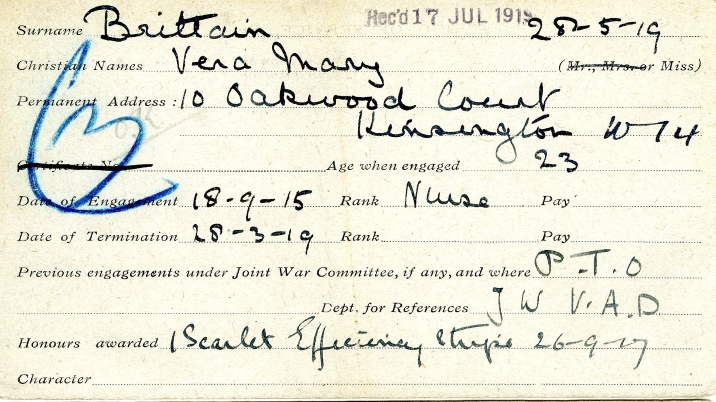 Surname Brittain Rec'd 17 JUL 1919 28-5-19
Christian Names Vera Mary (Mr., Mrs. or Miss)
Permanent Address: 10 Oakwood Court
Kensington W 14
Certificate No. Age when engaged 23
Date of Engagement 18-9-15 Rank Nurse Pay
Date of Termination 28-3-19 Rank Pay
Previous engagements under Joint War Committee, if any, and where P.T.O
Dept. for References J W V.A.D
Honours awarded 1 Scarlet Efficiency Stripe 26-9-17
Character